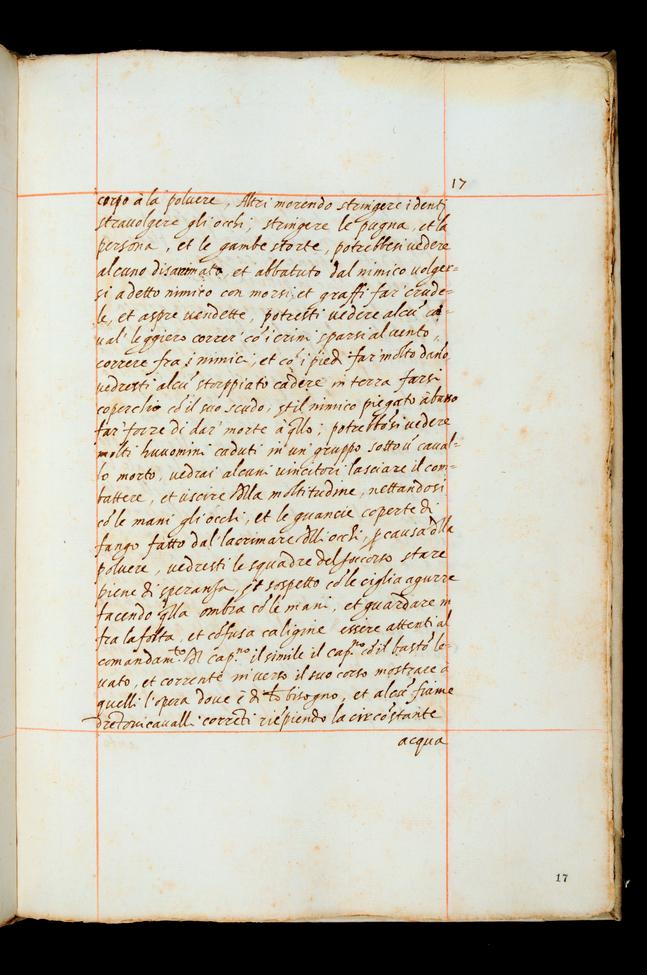 17
corpo à la poluere, Altri morendo stringere i denti
strauolgere gli occhi, stringere le pugna, et la
persona, et le gambe storte, potrebbesi uedere
alcuno disarmato, et abbatuto dal nimico uolger=
si a detto nimico con morsi, et graffi far' crude=
le, et aspre uendette, potresti uedere alcū ca=
ual' leggiero correr' cō i crini sparsi al uento,
correre fra i nimici, et cō i piedi far' molto dano
uedresti alcū stroppiato cadere in terra farsi
coperchio cō il suo scudo, et il nimico piegato à basso
far' forze di dar' morte à q̄llo; potrebbōsi uedere
molti huuomini caduti in un' gruppo sotto ū caual=
lo morto, uedrai alcuni uincitori lasciare il com=
battere, et uscire d̄lla moltitudine, nettandosi
cō le mani gli occhi, et le guancie coperte di
fango fatto dal' lacrimare d̄lli occhi, p causa d̄lla
poluere, uedresti le squadre del soccorso stare
piene di speranza, et sospetto cō le ciglia agurre
facendo q̄lla ombra cō le mani, et guardare in
fra la folta, et cōfusa caligine essere attenti al
comandam.to d̄l cap.no il simile il cap.no cō il bastō le=
uato, et corrente in uerso il suo corso mostrare à
quelli l'opera doue è di bisogno, et alcū fiume
dretoui caualli correti riēpiendo la circōstante
acqua
17